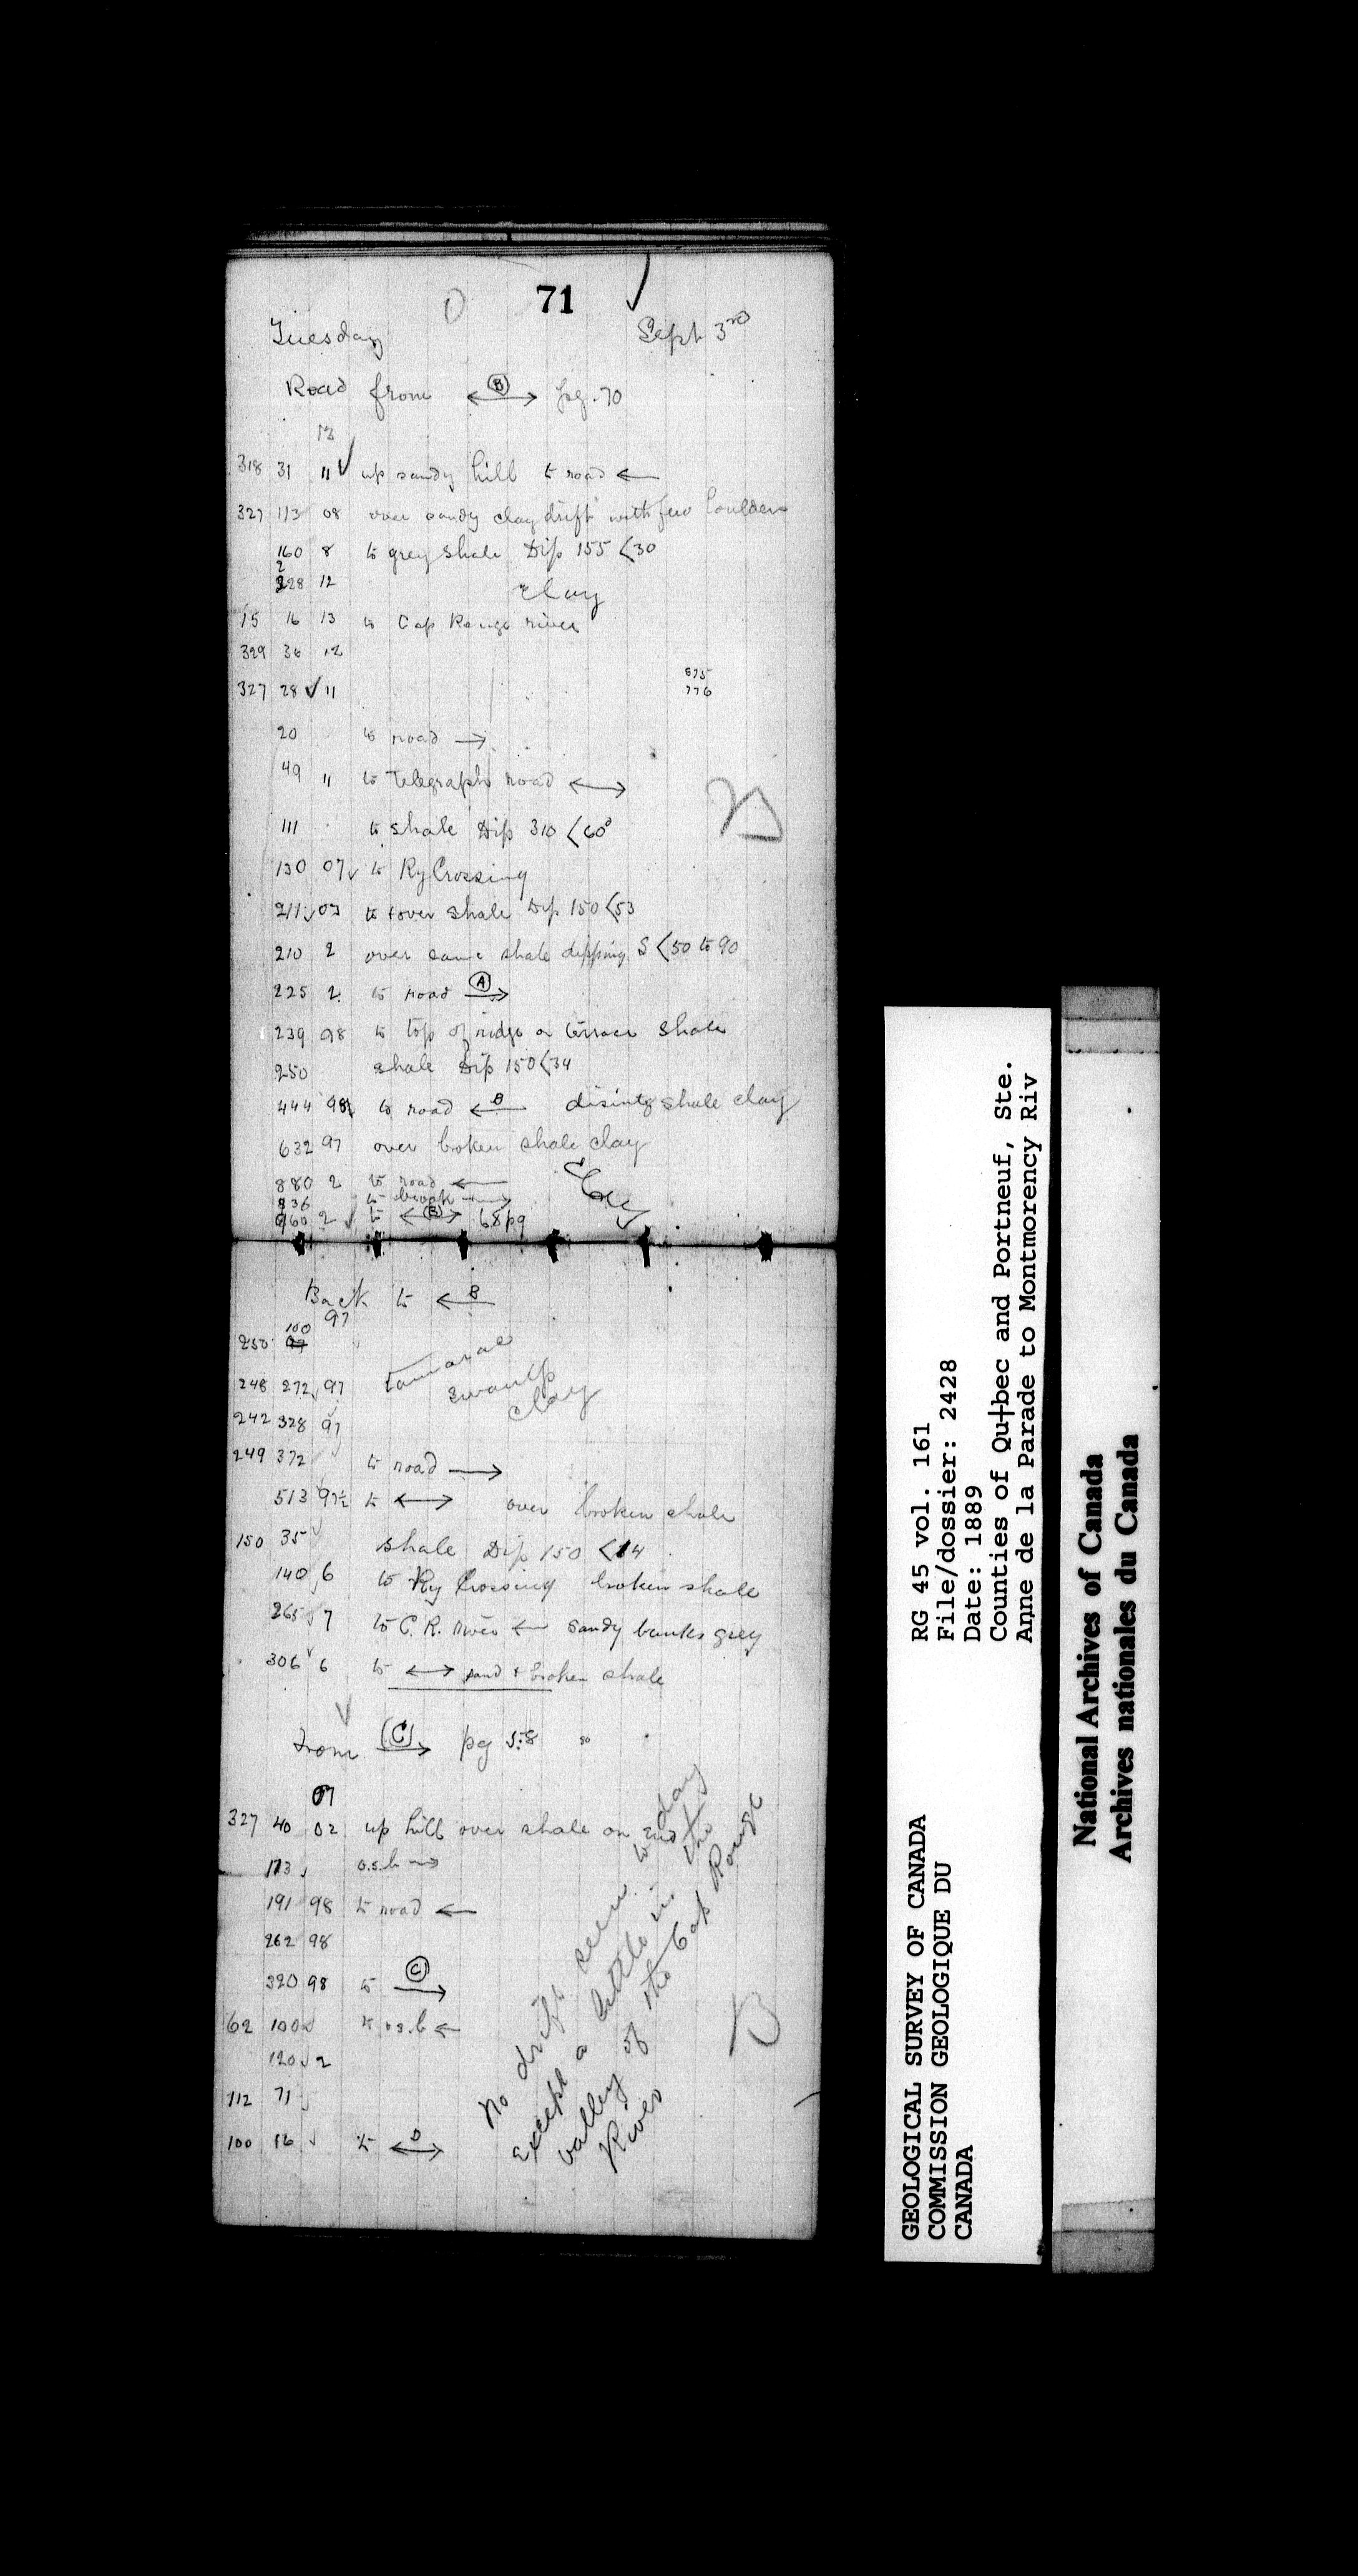 71
Tuesday Sept 3rd
Road from ←Ⓑ→ pg. 70
13
318 31 11 ✓ up sandy hill to road ←
327 113 08 over sandy clay drift with few boulders
160 8 to grey shale Dip 155 <30
228 12 clay
15 16 13 to Cap Rouge river
329 36 12
327 28 ✓ 11
675
776
20 to road →
49 11 to Telegraph road ←→
111 to shale Dip 310 <60°
130 07 ✓ to Ry Crossing
211 ✓ 03 to & over shale Dip 150 <53
210 2 over same shale dipping S <50 to 90
225 2 to road Ⓐ→
239 98 to top of ridge or terrace shale
250 shale Dip 150 <34
444 98 to road ←B disintg shale clay
632 97 over broken shale clay
880 2 to road ←
936 to brook →
960 2 ✓ to ←Ⓑ→ 68 pg
Clay
Back to ←B
97
250 100
248 272 ✓ 97 tamarac swamp
clay
242 328 97
249 372 to road →
513 97½ to ←→ over broken shale
150 35 shale Dip 150 <14
140 6 to Ry Crossing broken shale
265 ✓ 7 to C. R. river ← sandy banks grey
306 ✓ 6 to ←→ sand & broken shale
From Ⓒ→ pg 58
97
327 40 02 up hill over shale on end
173 o.s.b →
191 98 to road ←
262 98
320 98 to Ⓒ→
62 100 to o.s.b ←
120 ✓ 2
112 71
100 16 ✓ to ←D→
No drift seen to day
except a little in the
valley of the Cap Rouge
River
GEOLOGICAL SURVEY OF CANADA
COMMISSION GEOLOGIQUE DU
CANADA
RG 45 vol. 161
File/dossier: 2428
Date: 1889
Counties of Qu†bec and Portneuf, Ste.
Anne de la Parade to Montmorency Riv
National Archives of Canada
Archives nationales du Canada